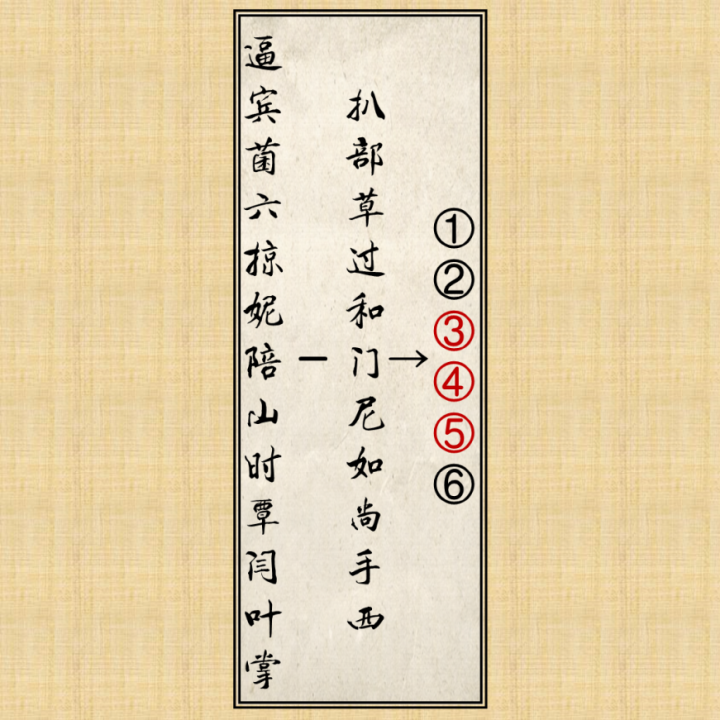 逼宾菌六掠妮陪山时覃闫叶掌
—
扒部草过和门尼如尚手西
→
①②③④⑤⑥